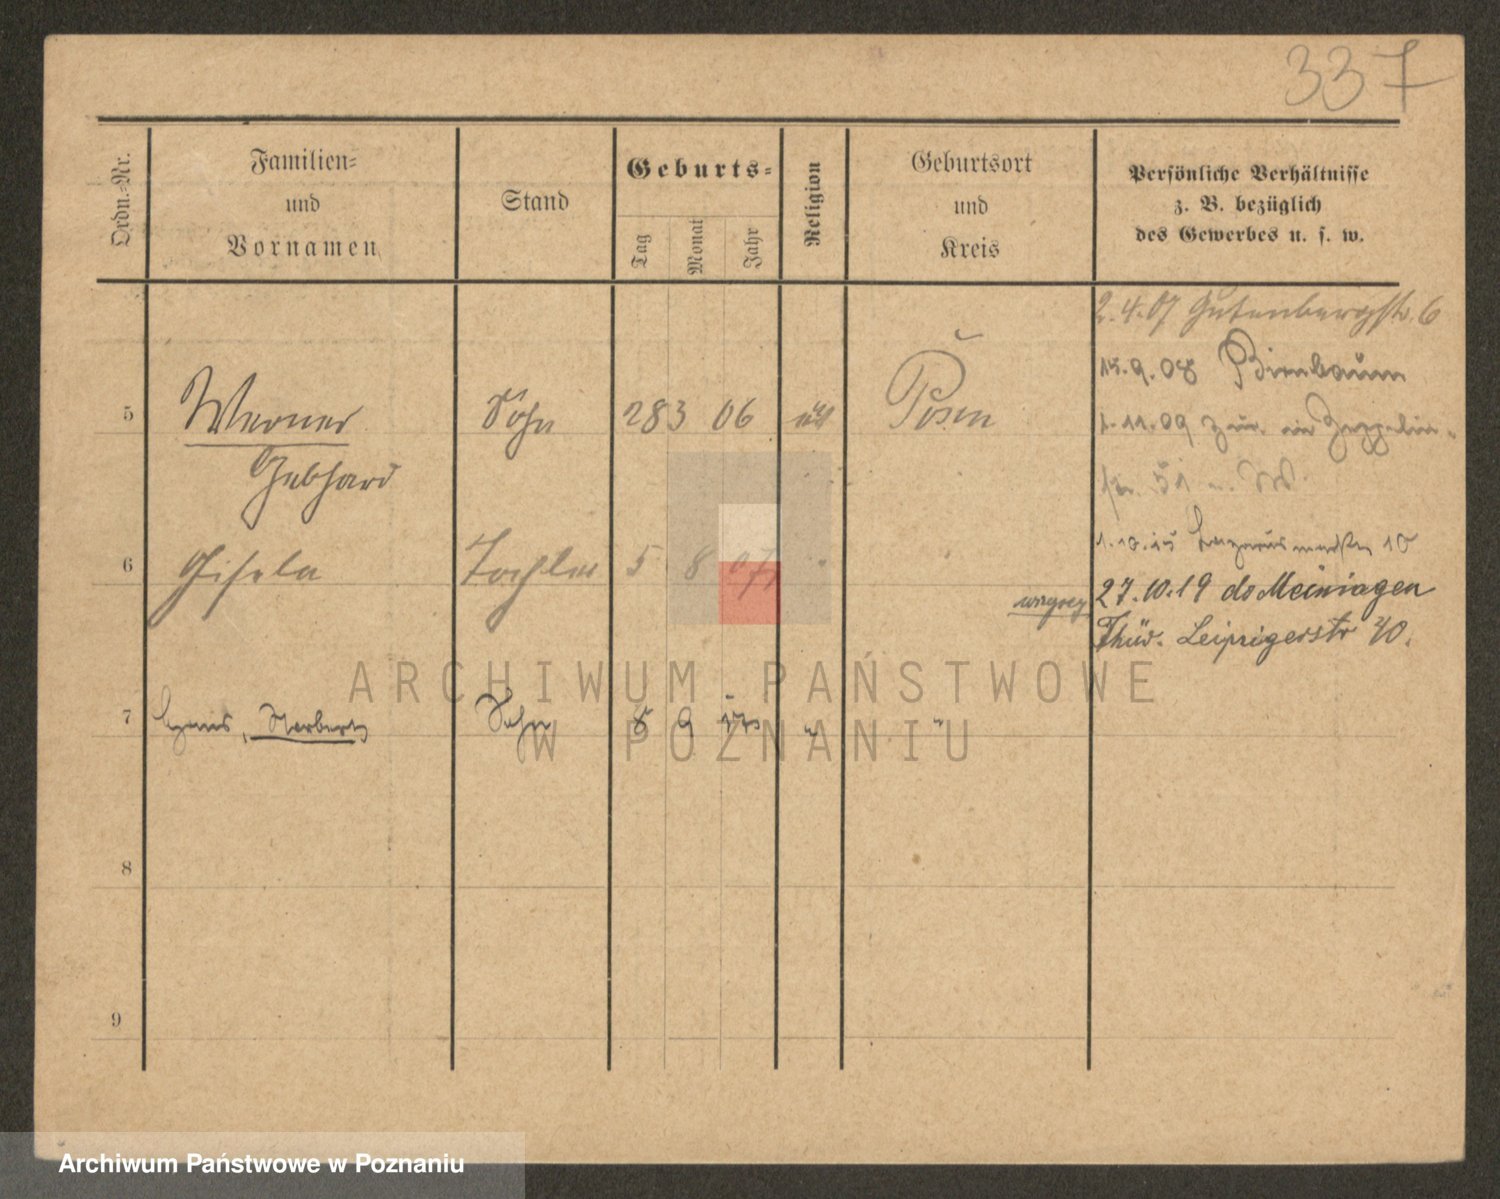 337
Ordn.-Nr.
Familien-
und
Vornamen
Stand
Geburts-
Tag
Monat
Jahr
Religion
Geburtsort
und
Kreis
Persönliche Verhältnisse
z. B. bezüglich
des Gewerbes u. s. w.
2.4.07 Gutenbergstr. 6
15.9.08 Birnbaum
5 Werner Sohn 28 3 06 Posen
1.11.09 Zeppelin-
Gebhard
str. 51 W.
6 Gisela Tochter 5 8 07
1.10.15 10
27.10.19 do Meiningen
Thür. Leipzigerstr 40.
7 Hans, Norbert Sohn 8 9 " "
8
9
ARCHIWUM PAŃSTWOWE
W POZNANIU
Archiwum Państwowe w Poznaniu